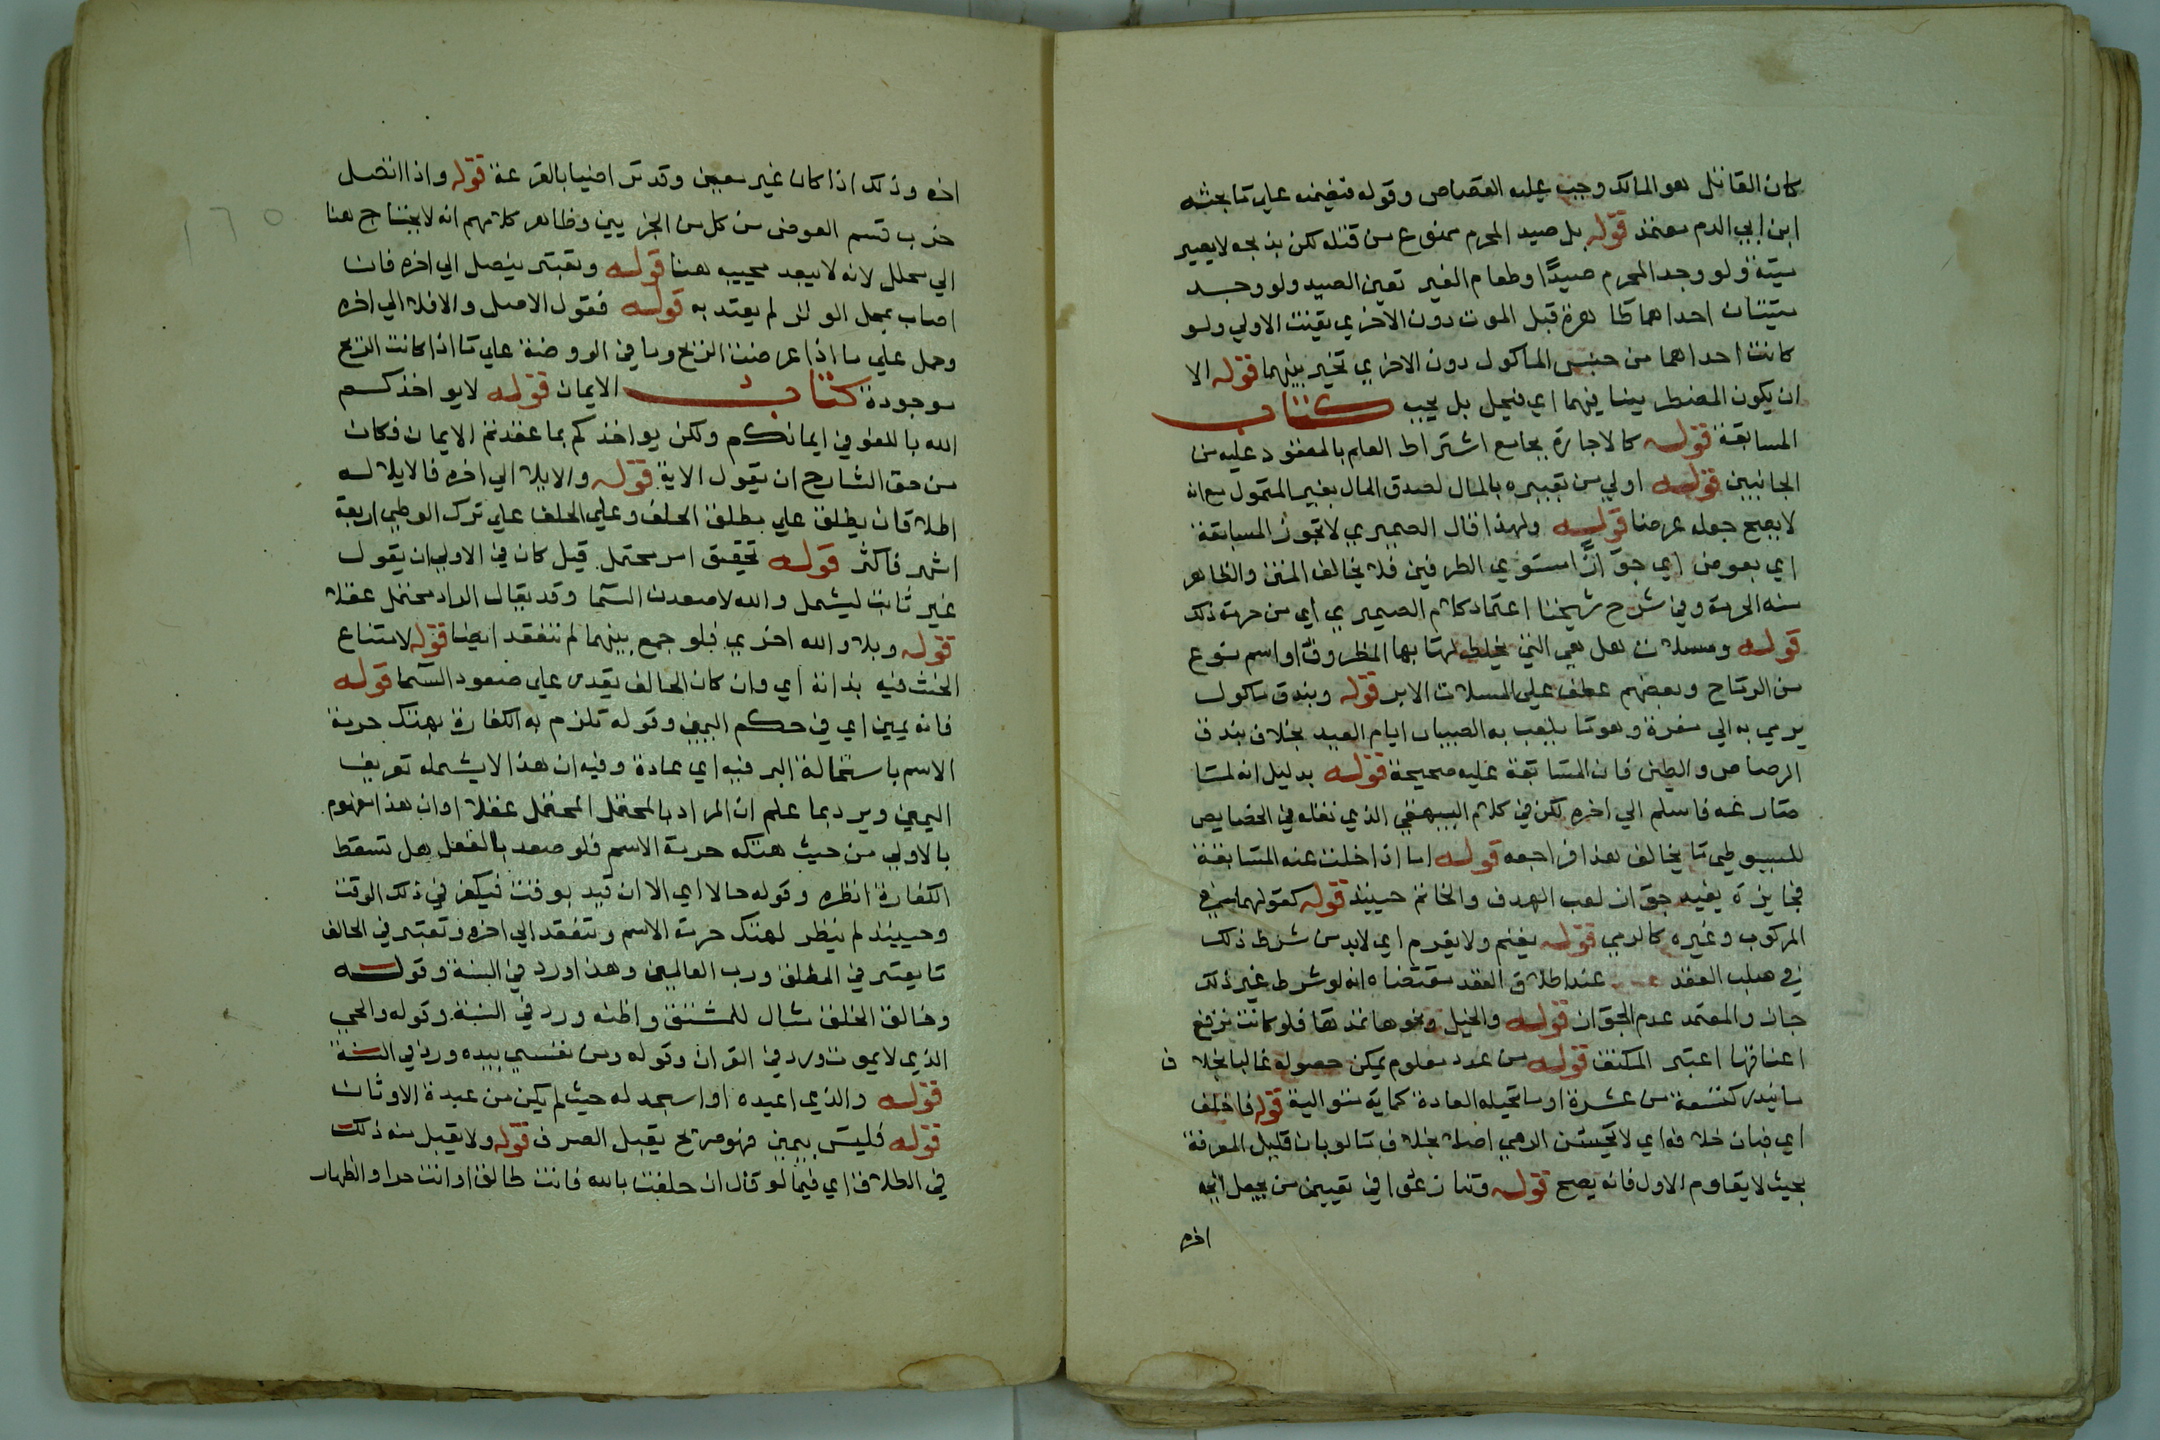 كان القاتل هو المالك وجب عليه القصاص وقوله فيضمنه على ما بحثه
ابن ابي الدم معتمد قوله بل صيد المحرم ممنوع من قتله لكن بذبحه لا يصير
ميتة ولو وجد المحرم صيدًا وطعام الغير تعين الصيد ولو وجد
ميتتان احداهما طاهرة قبل الموت دون الاخري تعينت الاولي ولو
كانت احداهما من جنس الماكول دون الاخري تخير بينهما قوله الا
ان يكون المضطر نبيا فيهما اي فيحل بل يجب كتاب
المسابقة قوله كالاجارة بجامع اشتراط العلم بالمعقود عليه من
الجانبين قوله اولي من تعبيره بالمال لصدق المال بغير المتمول مع انه
لا يصح جعله عوضا قوله ولهذا قال الصيمري لا تجوز المسابقة
اي بعوض اي جوازًا مستوي الطرفين فلا يخالف المتن والظاهر
منه الحرمة وفي شرح شيخنا اعتماد كلام الصيمري اي من حرمة ذلك
قوله ومسلات هل هي التي يخاط بها الظروف او اسم نوع
من الرماح وبعضهم عطف على المسلات الابر قوله وبندق ماكول
يرمي به الي حفرة وهو ما يلعب به الصبيان ايام العيد بخلاف بندق
الرصاص والطين فان المسابقة عليه صحيحة قوله بدليل انه لما
صارعه فاسلم الي اخره لكن في كلام البيهقي الذي نقله في الخصايص
للسيوطي ما يخالف هذا فراجعه قوله اما اذا خلت عنه المسابقة
فجايزة يفيد جواز لعب الهدف والخاتم حينيذ قوله كقولهما
المركوب وغيره كالرمي قوله يغنم ولا يغرم اي لا بد من شرط ذلك
في صلب العقد عند اطلاق العقد مقتضاه انه لو شرط غير ذلك
جاز والمعتمد عدم الجواز قوله والخيل ونحوها تمدها فلو كانت ترفع
اعناقها اعتبر المكتف قوله من عدد معلوم يمكن حصوله غالبا بخلاف
ما يندر كتسعة من عشرة او ما تحيله العادة كماية متوالية قوله فاخلف
اي فبان خلافه اي لا يحسن الرمي اصلا بخلاف ما لو بان قليل المعرفة
بحيث لا يقاوم الاول فانه يصح قوله وتنازعوا في تعيين من يجعل الي
اخره
اخره وذلك اذا كان غير معين وقد تراضيا بالقرعة قوله واذا انتضل
حزب قسم العوض من كل من الحزبين وظاهر كلامهم انه لا يحتاج هنا
الي محلل لانه لا يبعد مجييه هنا قوله ويعتبر بنصل الي اخره فان
اصاب بمحل الوتر لم يعتد به قوله فقول الاصل والا فلا الي اخره
وحمل علي ما اذا عرضت الريح وما في الروضة علي ما اذا كانت الريح
موجودة كتاب الايمان قوله لا يواخذكم
الله باللغو في ايمانكم ولكن يواخذكم بما عقدتم الايمان فكان
من حق الشارح ان يقول الاية قوله والايلا الي اخره فالايلا له
اطلاقان يطلق علي مطلق الحلف وعلي الحلف علي ترك الوطي اربعة
اشهر فاكثر قوله تحقيق امر محتمل قيل كان في الاولي ان يقول
غير ثابت ليشمل والله لاصعدن السما وقد يقال المراد محتمل عقلا
قوله وبلا والله اخري فلو جمع بينهما لم تنعقد ايضا قوله لامتناع
الحنث فيه بذاته اي وان كان الحالف يقدر علي صعود السما قوله
فانه يمين اي في حكم اليمين وقوله تلزم به الكفارة بهتك حرمة
الاسم باستحالة البر فيه اي عادة وفيه ان هذا لا يشمله تعريف
اليمين ويرد بما علم ان المراد بالمحتمل المحتمل عقلا او ان هذا مفهوم
بالاولي من حيث هتكه حرمة الاسم فلو صعد بالفعل هل تسقط
الكفارة انظره وقوله حالا اي الا ان قيد بوقت فيكفر في ذلك الوقت
وحينيذ لم ينظر لهتك حرمة الاسم وتنعقد الي اخره وتعتبر في الحالف
ما يعتبر في المطلق ورب العالمين وهذا ورد في السنة وقوله
وخالق الخلق مثال للمشتق واظنه ورد في السنة وقوله والحي
الذي لا يموت ورد في القران وقوله ومن نفسي بيده ورد في السنة
قوله والذي اعبده او اسجد له حيث لم يكن من عبدة الاوثان
قوله فليس بيمين فهو صريح يقبل الصرف قوله ولا يقبل منه ذلك
في الطلاق اي فيما لو قال ان حلفت بالله فانت طالق او انت حر او الظهار